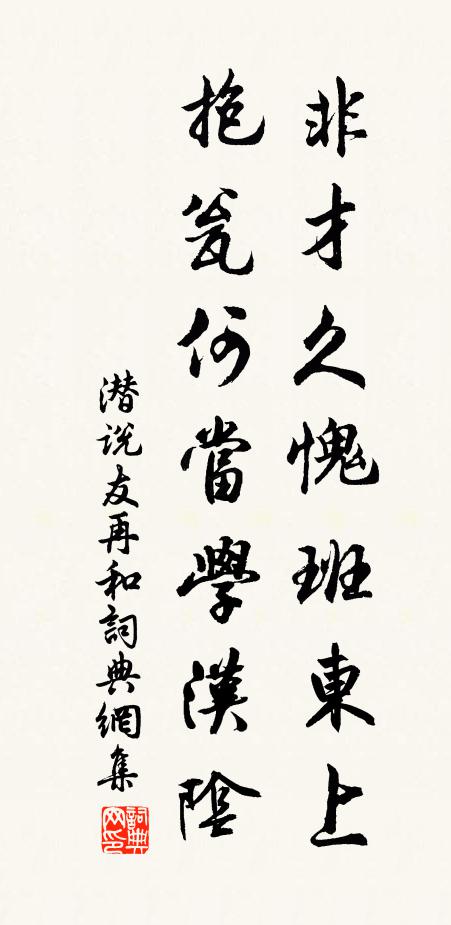 非才久愧班東上
抱瓮何當學漢陰
潛说友再和詞典網集
詞典网印